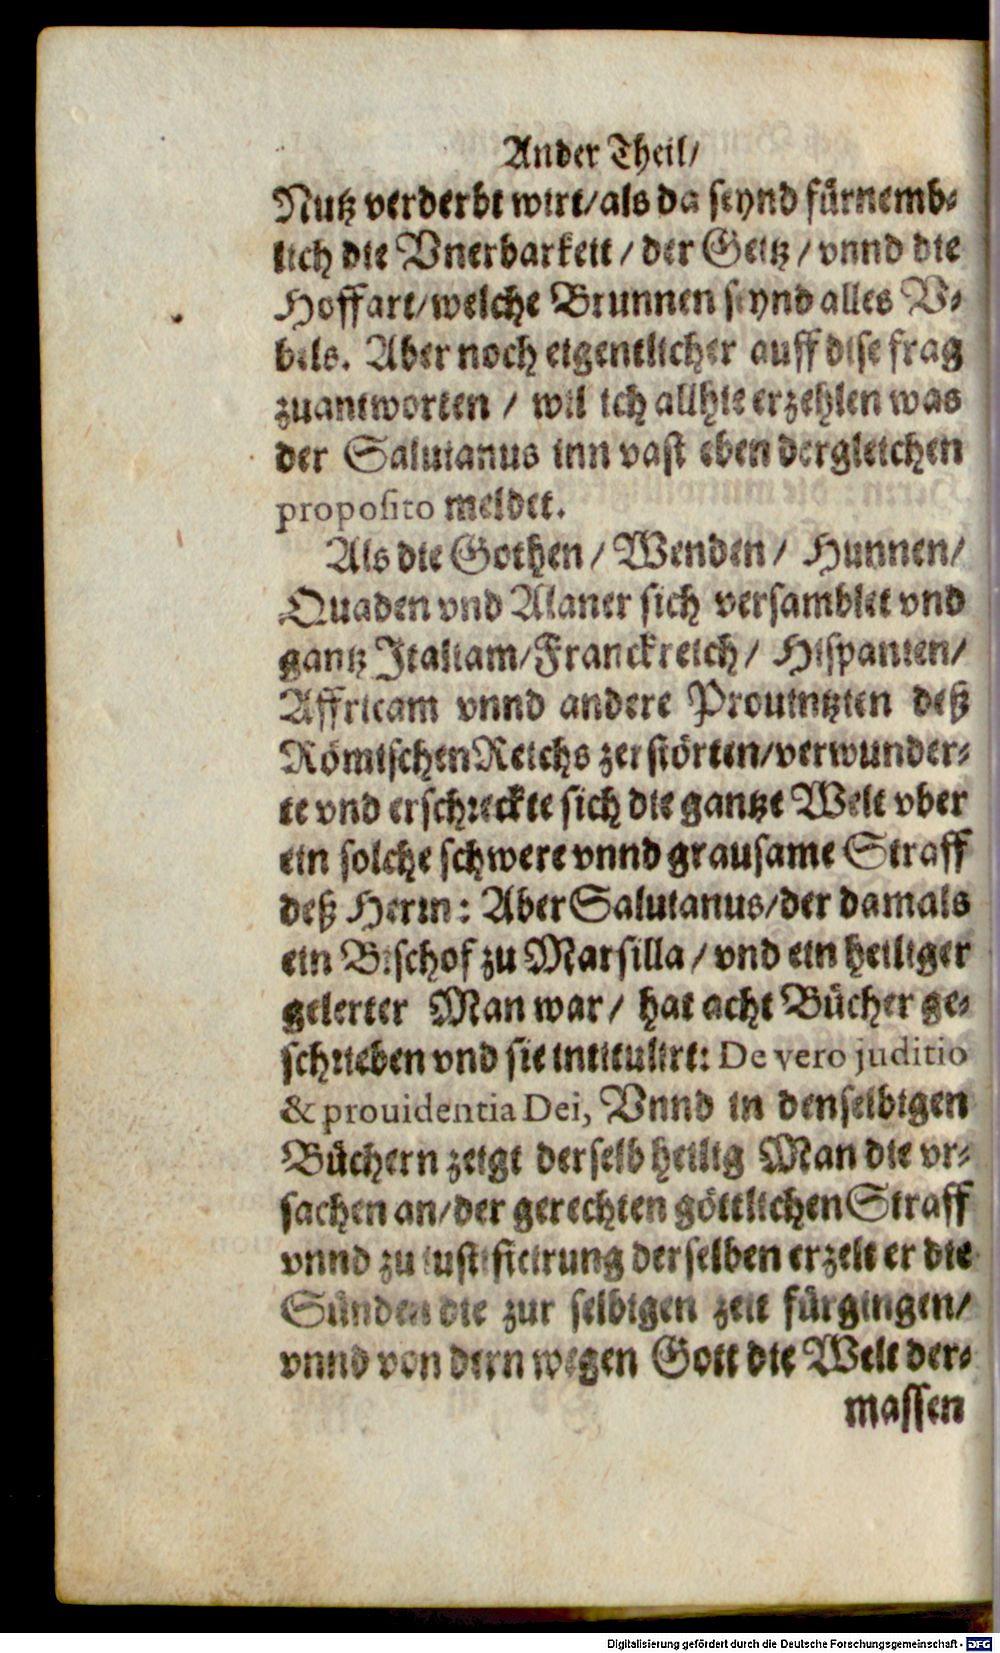 Ander Theil/
Nutz verderbt wirt/als da seynd fürnemb-
lich die Vnerbarkeit / der Geitz / vnnd die
Hoffart/welche Brunnen seynd alles V-
bels. Aber noch eigentlicher auff dise frag
zuantworten / wil ich allhie erzehlen was
der Saluianus inn vast eben dergleichen
proposito meldet.
Als die Gothen / Wenden / Hunnen/
Quaden vnd Alaner sich versamblet vnd
gantz Italiam/Franckreich/ Hispanien/
Affricam vnnd andere Prouintzien deß
Römischen Reichs zerstörten/verwunder-
te vnd erschreckte sich die gantze Welt vber
ein solche schwere vnnd grausame Straff
deß Herrn: Aber Saluianus/der damals
ein Bischof zu Marsilla / vnd ein heiliger
gelerter Man war / hat acht Bücher ge-
schrieben vnd sie intitulirt: De vero juditio
& prouidentia Dei, Vnnd in denselbigen
Büchern zeigt derselb heilig Man die vr-
sachen an/der gerechten göttlichen Straff
vnnd zu iustificirung derselben erzelt er die
Sünden die zur selbigen zeit fürgingen/
vnnd von dern wegen Gott die Welt der-
massen
Digitalisierung gefördert durch die Deutsche Forschungsgemeinschaft - DFG